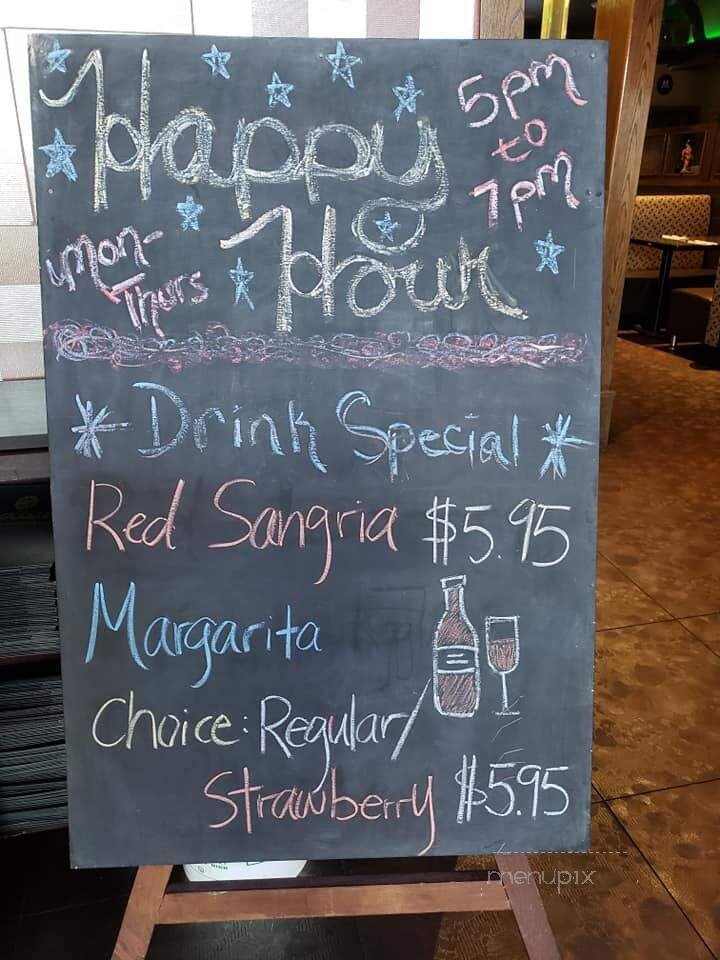 Happy
5pm
to
7pm
Hour
Mon-
Thurs
* Drink Special *
Red Sangria $5.95
Margarita
Choice: Regular/
Strawberry $5.95
menupix